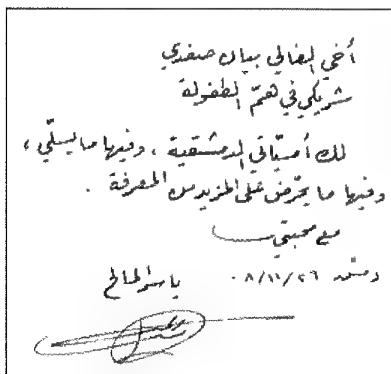 أخي الغالي بيان صفدي
شريكي في همّ الطفولة
لك أمسيّاتي الدمشقية ، وفيها ما يسلّي ،
وفيها ما يحرّض على المزيد من المعرفة .
مع محبتي
دمشق ٢٦/١١/٠٨
ياسر المالح